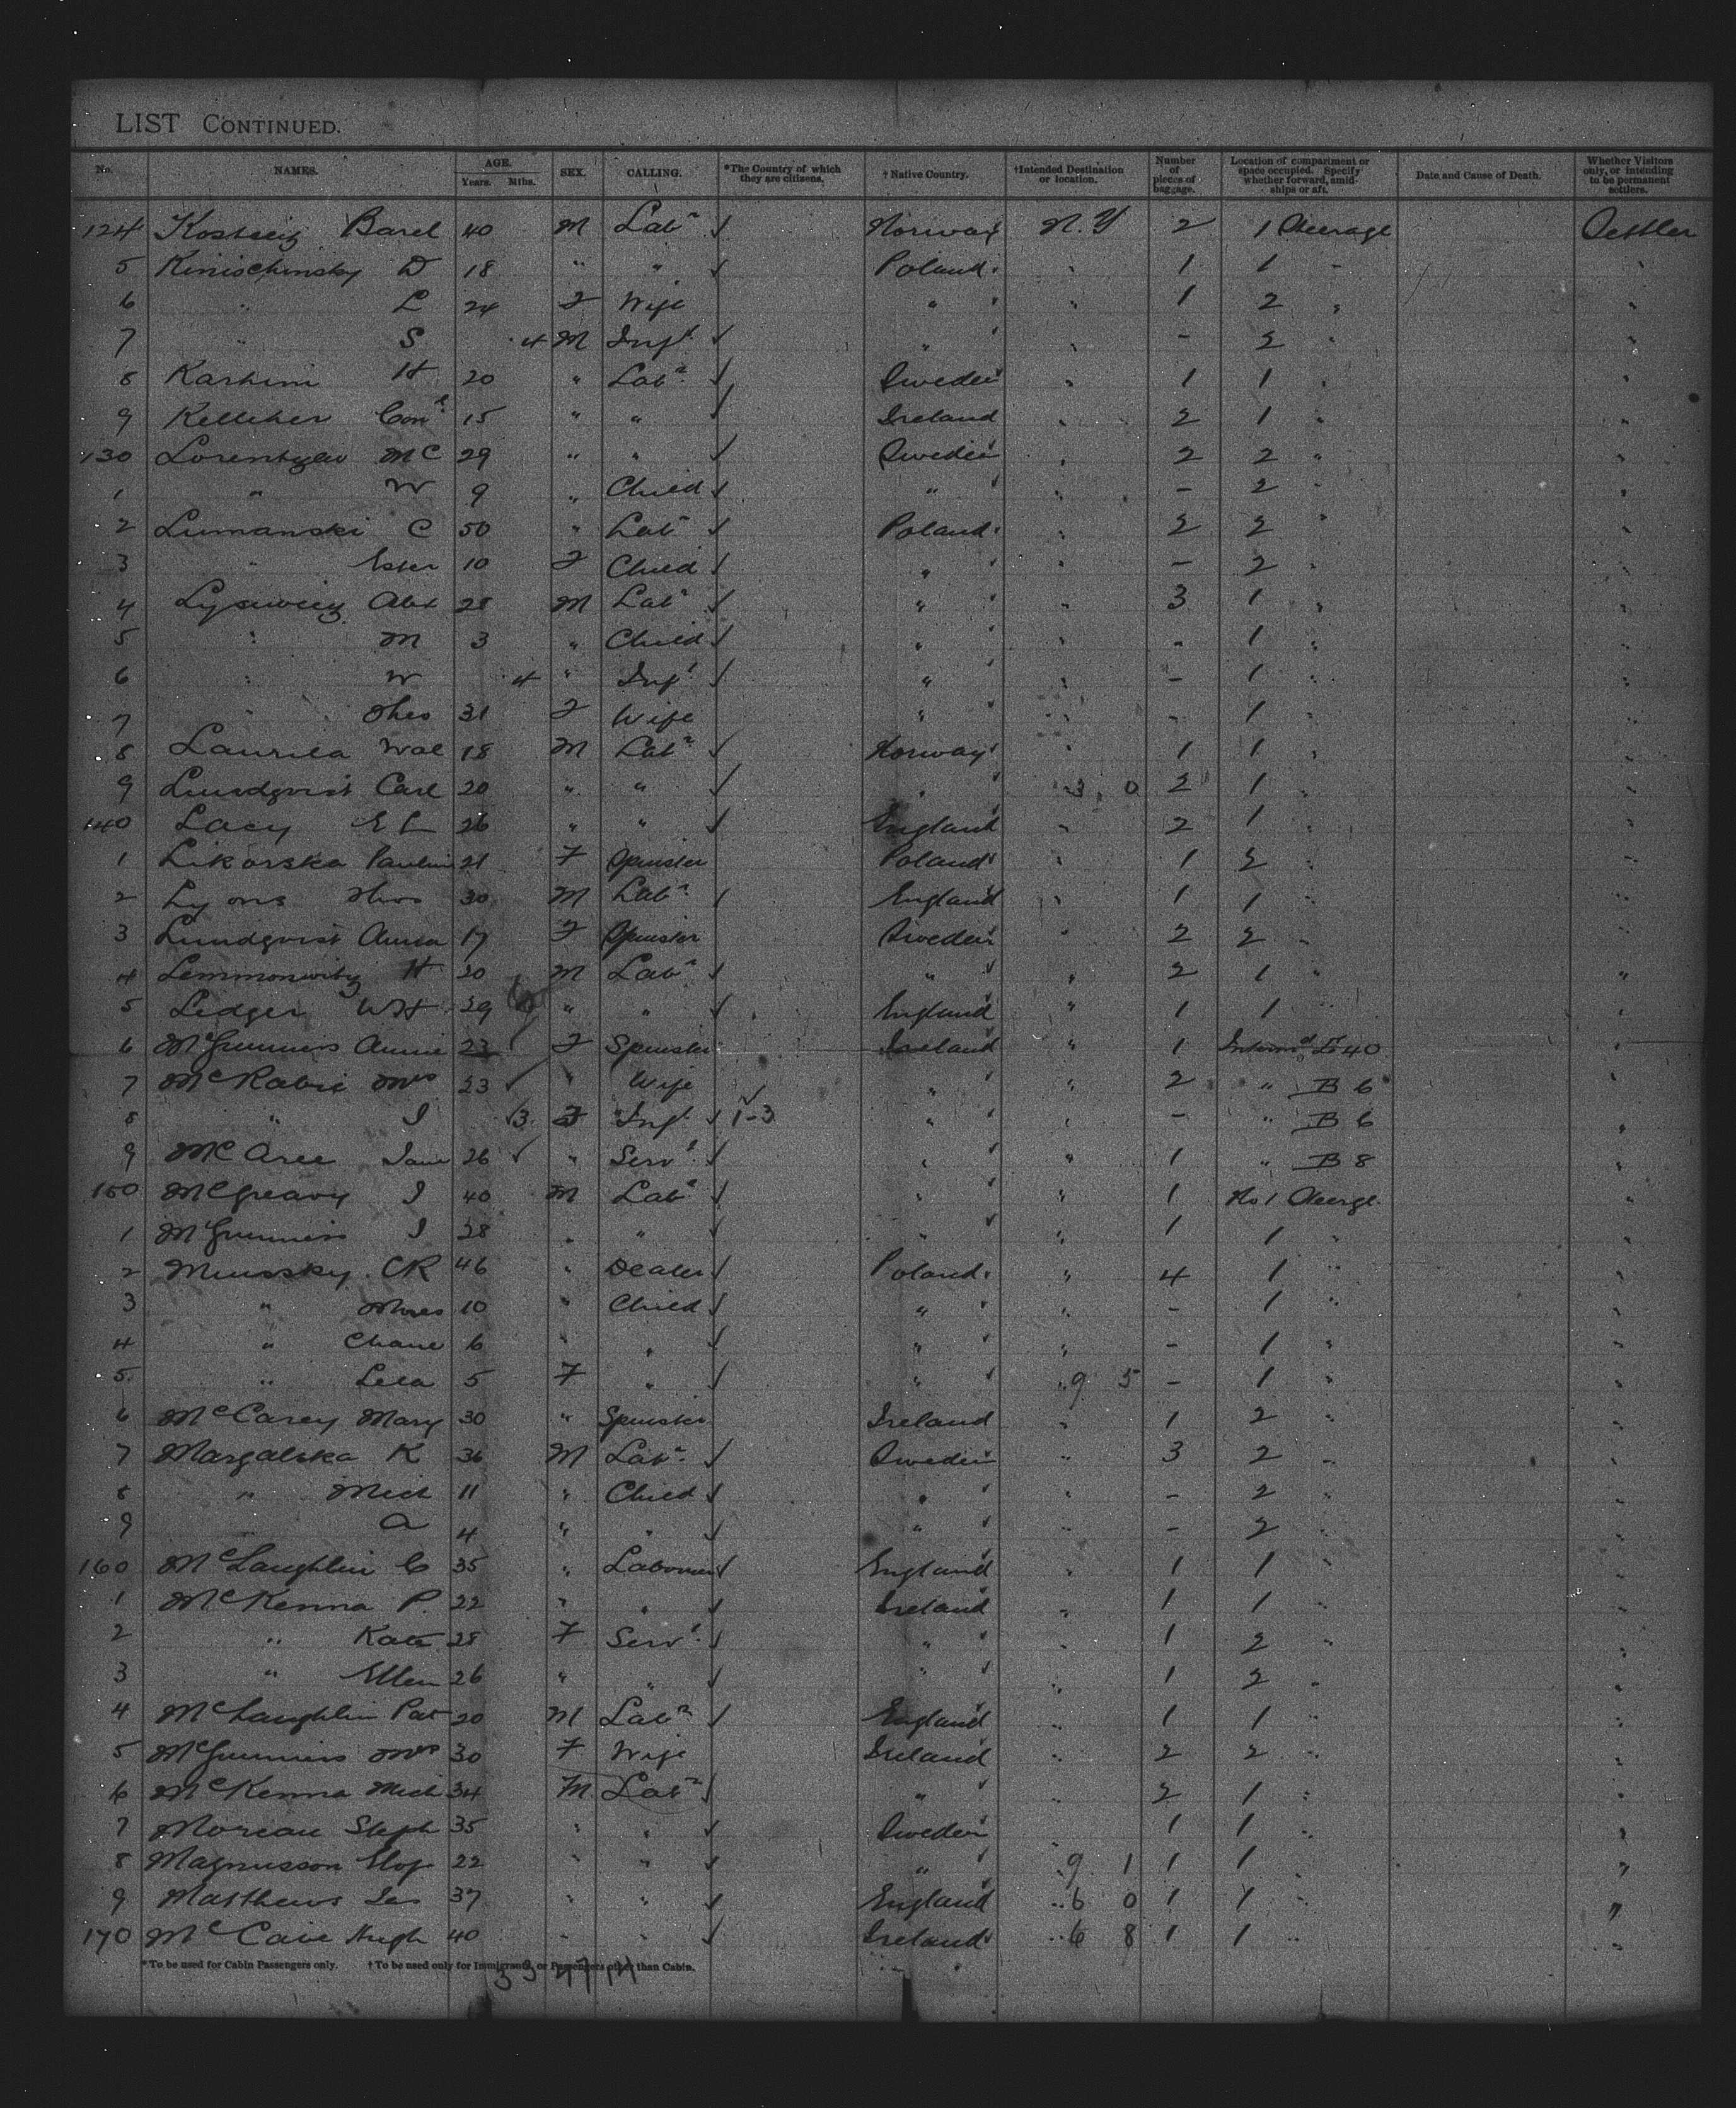 LIST CONTINUED.
No. NAMES. AGE. Years. Mths. SEX. CALLING. *The Country of which they are citizens. † Native Country. †Intended Destination or location. Number of pieces of baggage. Location of compartment or space occupied. Specify whether forward, amidships or aft. Date and Cause of Death. Whether Visitors only, or intending to be permanent settlers.
124 Barel 40 M Labr Norway N.Y 2 1 Steerage Settler
5 Kinischinsky D 18 " " Poland " 1 1 " "
6 " L 24 F Wife " " 1 2 " "
7 " S 4 M Inft " " - 2 " "
8 Karhim H 20 " Labr Sweden " 1 1 " "
9 Kelleher Conl 15 " " Ireland " 2 1 " "
130 Mc 29 " " Sweden " 2 2 " "
1 " W 9 " Child " " - 2 " "
2 Lumanski C 50 " Labr Poland " 2 2 " "
3 " Ester 10 F Child " " - 2 " "
4 28 M Labr " " 3 1 " "
5 " M 3 " Child " " " 1 " "
6 " W 4 " Inft " " - 1 " "
7 " 31 F Wife " " - 1 " "
8 Laurila Wal 18 M Labr Norway " 1 1 " "
9 Lundqvist Carl 20 " " " 3 0 2 1 " "
140 Lacy E L 26 " " England " 2 1 " "
1 Likorska Paulin 21 F Spinster Poland " 1 2 " "
2 Lyons Thos 30 M Labr England " 1 1 " "
3 Lundqvist Anna 17 F Spinster Sweden " 2 2 " "
4 H 20 M Labr " " 2 1 " "
5 Ledger WH 39 " " England " 1 1 " "
6 McGuinness Annie 23 F Spinster Ireland " 1 Intermd 40 "
7 McRabie Mrs 23 " Wife " " 2 " B 6 "
8 " J 3 F Inft 1-3 " " - " B 6 "
9 McAree Jane 26 " Servt " " 1 " B 8 "
150 McGreavy J 40 M Labr " " 1 No 1 Steerge "
1 McGuinness J 28 " " " " 1 1 " "
2 Munsky CR 46 " Dealer Poland " 4 1 " "
3 " Moses 10 " Child " " - 1 " "
4 " Chane 6 " " " " - 1 " "
5 " Lela 5 F " " 9 5 - 1 " "
6 McCarey Mary 30 " Spinster Ireland " 1 2 " "
7 Margalska K 36 M Labr Sweden " 3 2 " "
8 " Mich 11 " Child " " - 2 " "
9 " A 4 " " " " - 2 " "
160 McLaughlin C 35 " Labourer England " 1 1 " "
1 McKenna P. 22 " " Ireland " 1 1 " "
2 " Kate 28 F Servt " " 1 2 " "
3 " Ellen 26 " " " " 1 2 " "
4 McLaughlin Pat 20 M Labr England " 1 1 " "
5 McGuinness Mrs 30 F Wife Ireland " 2 2 " "
6 McKenna Mich 34 M Labr " " 2 1 " "
7 Moreau Steph 35 " " Sweden " 1 1 " "
8 Magnusson Elof 22 " " " 9 1 1 1 " "
9 Matthews Jas 37 " " England 6 0 1 1 " "
170 McCabe Hugh 40 " " Ireland 6 8 1 1 " "
*To be used for Cabin Passengers only. †To be used only for Immigrants or Passengers other than Cabin.